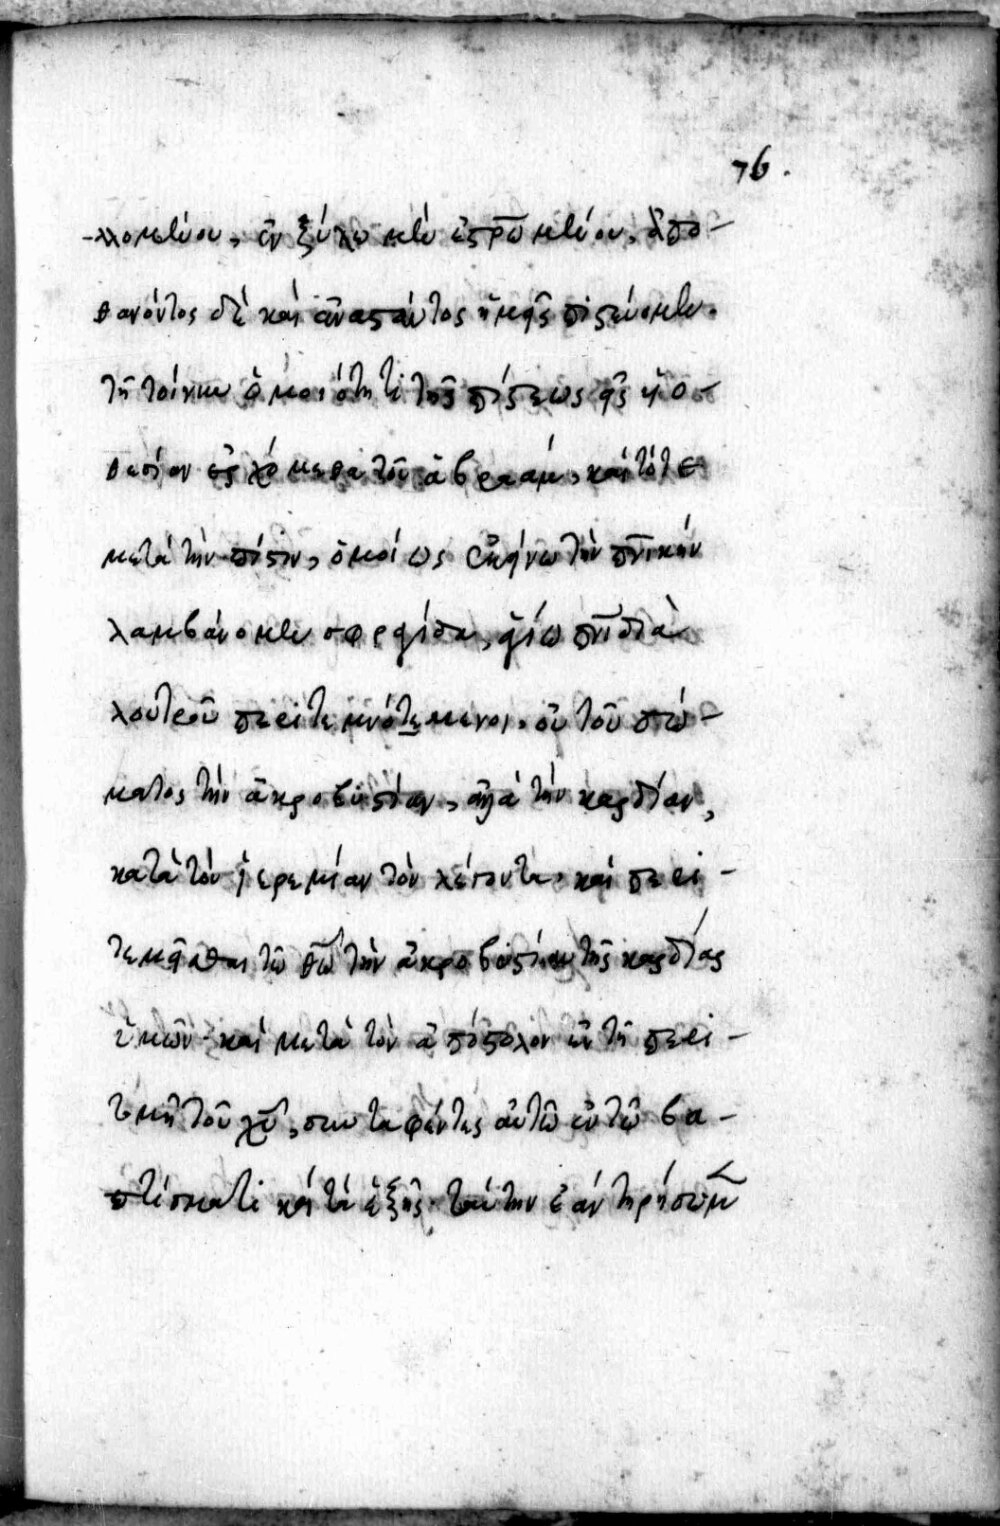 76.
-λλομένου, ἐν ξύλω μὲν ἐσ̅ρωμένου, ἀπο-
θανόντος δὲ καὶ ἀναστάντος ἡμεῖς πιστεύομεν.
τῆ τοίνυν ὁμοιότητι τῆς πίστεως εἰς υἱο-
θεσίαν ἐρχόμεθα τοῦ ἀβραάμ, καὶ τότε
μετὰ τὴν πίστιν, ὁμοίως ἐκείνω τὴν πν̅ικὴν
λαμβάνομεν σφραγίδα, ἁγίω πν̅ι διὰ
λουτροῦ περιτεμνότεμενοι. οὐ τοῦ σώ-
ματος τὴν ἀκροβυστίαν, ἀλλὰ τὴν καρδίαν,
κατὰ τὸν ἱερεμίαν τὸν λέγοντα, καὶ περι-
τεμεῖσθαι τῶ θ̅ω τὴν ἀκροβυστίαν τῆς καρδίας
ὑμῶν. καὶ μετὰ τὸν ἀπόστολον ἐν τῆ περι-
τομῆ τοῦ χ̅υ, συνταφέντες αὐτῶ ἐν τῶ βα-
πτίσματι καὶ τὰ ἑξῆς. ταύτην ἐὰν τηρήσωμεν